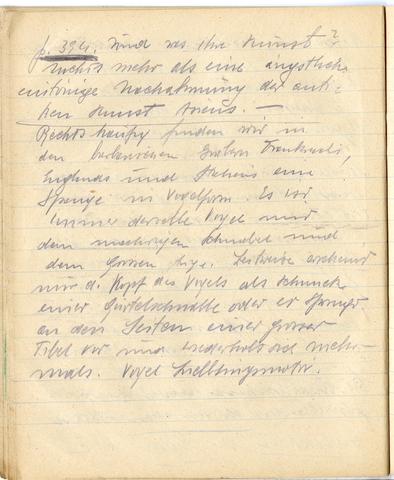 p. 394. Und was ihre Kunst?
Nichts mehr als eine ängstliche
eintönige Nachahmung der anti-
ken Kunst
Rechts häufig finden wir in
den barbarischen Gräbern Frankreichs,
Englands und Italiens eine
Spange in Vogelform. Es ist
immer derselbe Vogel mit
dem Schnabel und
dem grossen Auge. erscheint
nur d. Kopf des Vogels als Schmuck
einer Gürtelschnalle oder er springt
an den Seiten einer grossen
Fibel vor und wiederholt sich mehr-
mals. Vogel Lieblingsmotiv.